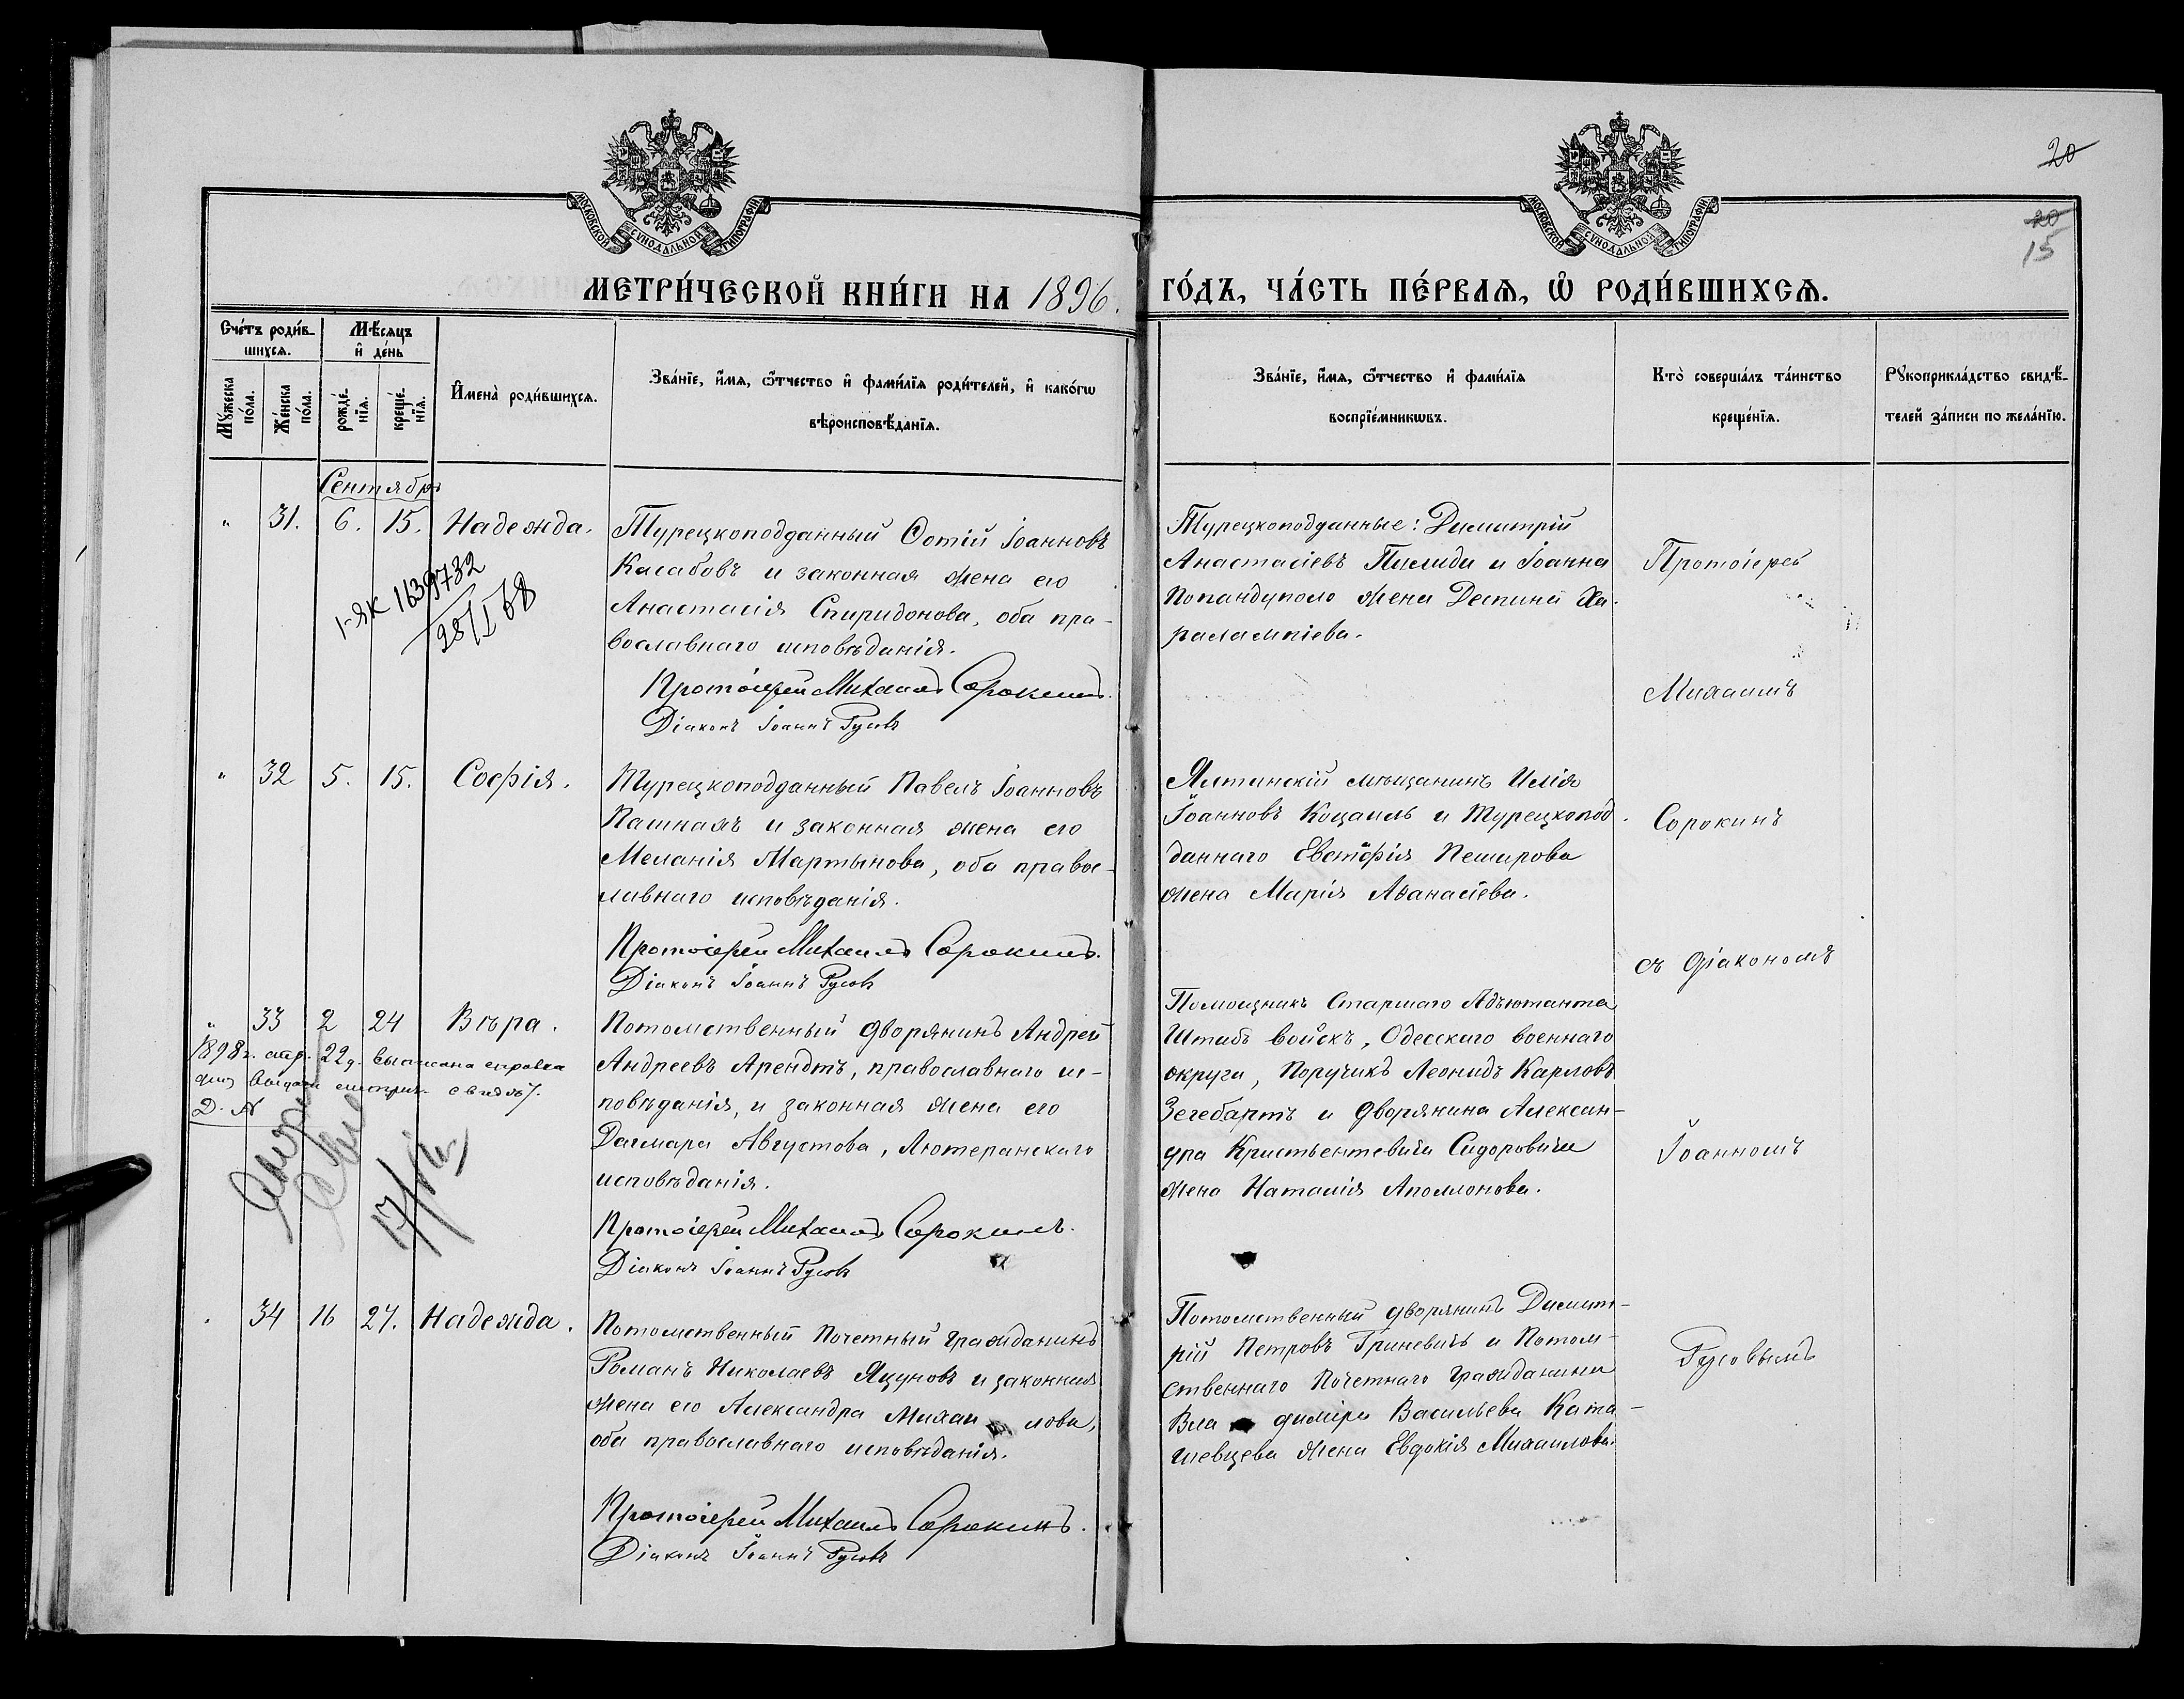 20
20
15
МОСКОВСКОЙ СѴНОДАЛЬНОЙ ТИПОГРАФІИ
МОСКОВСКОЙ СѴНОДАЛЬНОЙ ТИПОГРАФІИ
МЕТРИ́ЧЕСКОЙ КНИ́ГИ НА 1896.
ГО́ДЪ, ЧА́СТЬ ПЕ́РВАѦ, Ѽ РОДИ́ВШИХСѦ.
Сче́тъ роди́в-
шихсѧ.
Мꙋжеска
по́ла.
Же́нска
по́ла.
Мѣ́сѧцъ
и҆ де́нь
рожде́-
нїѧ.
креще́-
нїѧ.
И҆мена̀ роди́вшихсѧ.
Зва́нїе, и҆́мѧ, ѻ҆́тчество и҆ фами́лїѧ роди́телей, и҆ како́гѡ
вѣроисповѣ́данїѧ.
Зва́нїе, и҆́мѧ, ѻ҆́тчество и҆ фами́лїѧ
воспрїе́мникѡвъ.
Кто̀ соверша́лъ та́инство
креще́нїѧ.
Рꙋкоприкла́дство свидѣ́-
телей за́писи по жела́нїю.
Сентябрь
" 31. 6. 15. Надежда.
Турецкоподданный Фотій Іоанновъ
Касабовъ и законная жена его
Анастасія Спиридонова, оба пра-
вославнаго исповѣданія.
Протоіерей Михаилъ Сорокинъ.
Діаконъ Іоаннъ Русовъ
I-ЯК 1639732
28/I 68
Турецкоподданные: Димитрій
Анастасіевъ и Іоанна
Попандупало жена Деспина Ха-
рлампіева.
" 32 5. 15. Софія.
Турецкоподданный Павелъ Іоанновъ
Пашнамъ и законная жена его
Меланія Мартынова, оба правос-
лавнаго исповѣданія.
Протоіерей Михаилъ Сорокинъ.
Діаконъ Іоаннъ Русовъ
Ялтинскій мѣщанинъ Илія
Іоанновъ и Турецкопод-
даннаго Пеширова
жена Марія Аѳанасіева.
" 33 2 24 Вѣра.
Потомственный дворянинъ Андрей
Андреевъ Арендтъ, православнаго ис-
повѣданія, и законная жена его
Дагмара Августова, Лютеранскаго
исповѣданія.
Протоіерей Михаилъ Сорокинъ.
Діаконъ Іоаннъ Русовъ
1898 г. апр. 22 д. выписана справка
для выдачи метрич. свидѣт.
Д. №
Помощникъ Старшаго Адъютанта
Штаба войскъ, Одесскаго военнаго
округа, Поручикъ Леонидъ Карловъ
Зегебартъ и дворянина Алексан-
дра Сидоровича
жена Наталія Аполлонова.
34 16 27. Надежда.
Потомственный Почетный гражданинъ
Романъ Николаевъ Яцуновъ и законная
жена его Александра Михаилова,
оба православнаго исповѣданія.
Протоіерей Михаилъ Сорокинъ.
Діаконъ Іоаннъ Русовъ
Потомственный дворянинъ Димит-
рій Петровъ Гриневичъ и Потом-
ственнаго Почетнаго гражданина
Владиміра Васильева Ката-
шевцева жена Евдокія Михаилова.
Протоіерей
Михаилъ
Сорокинъ
съ діакономъ
Іоанномъ
Русовымъ